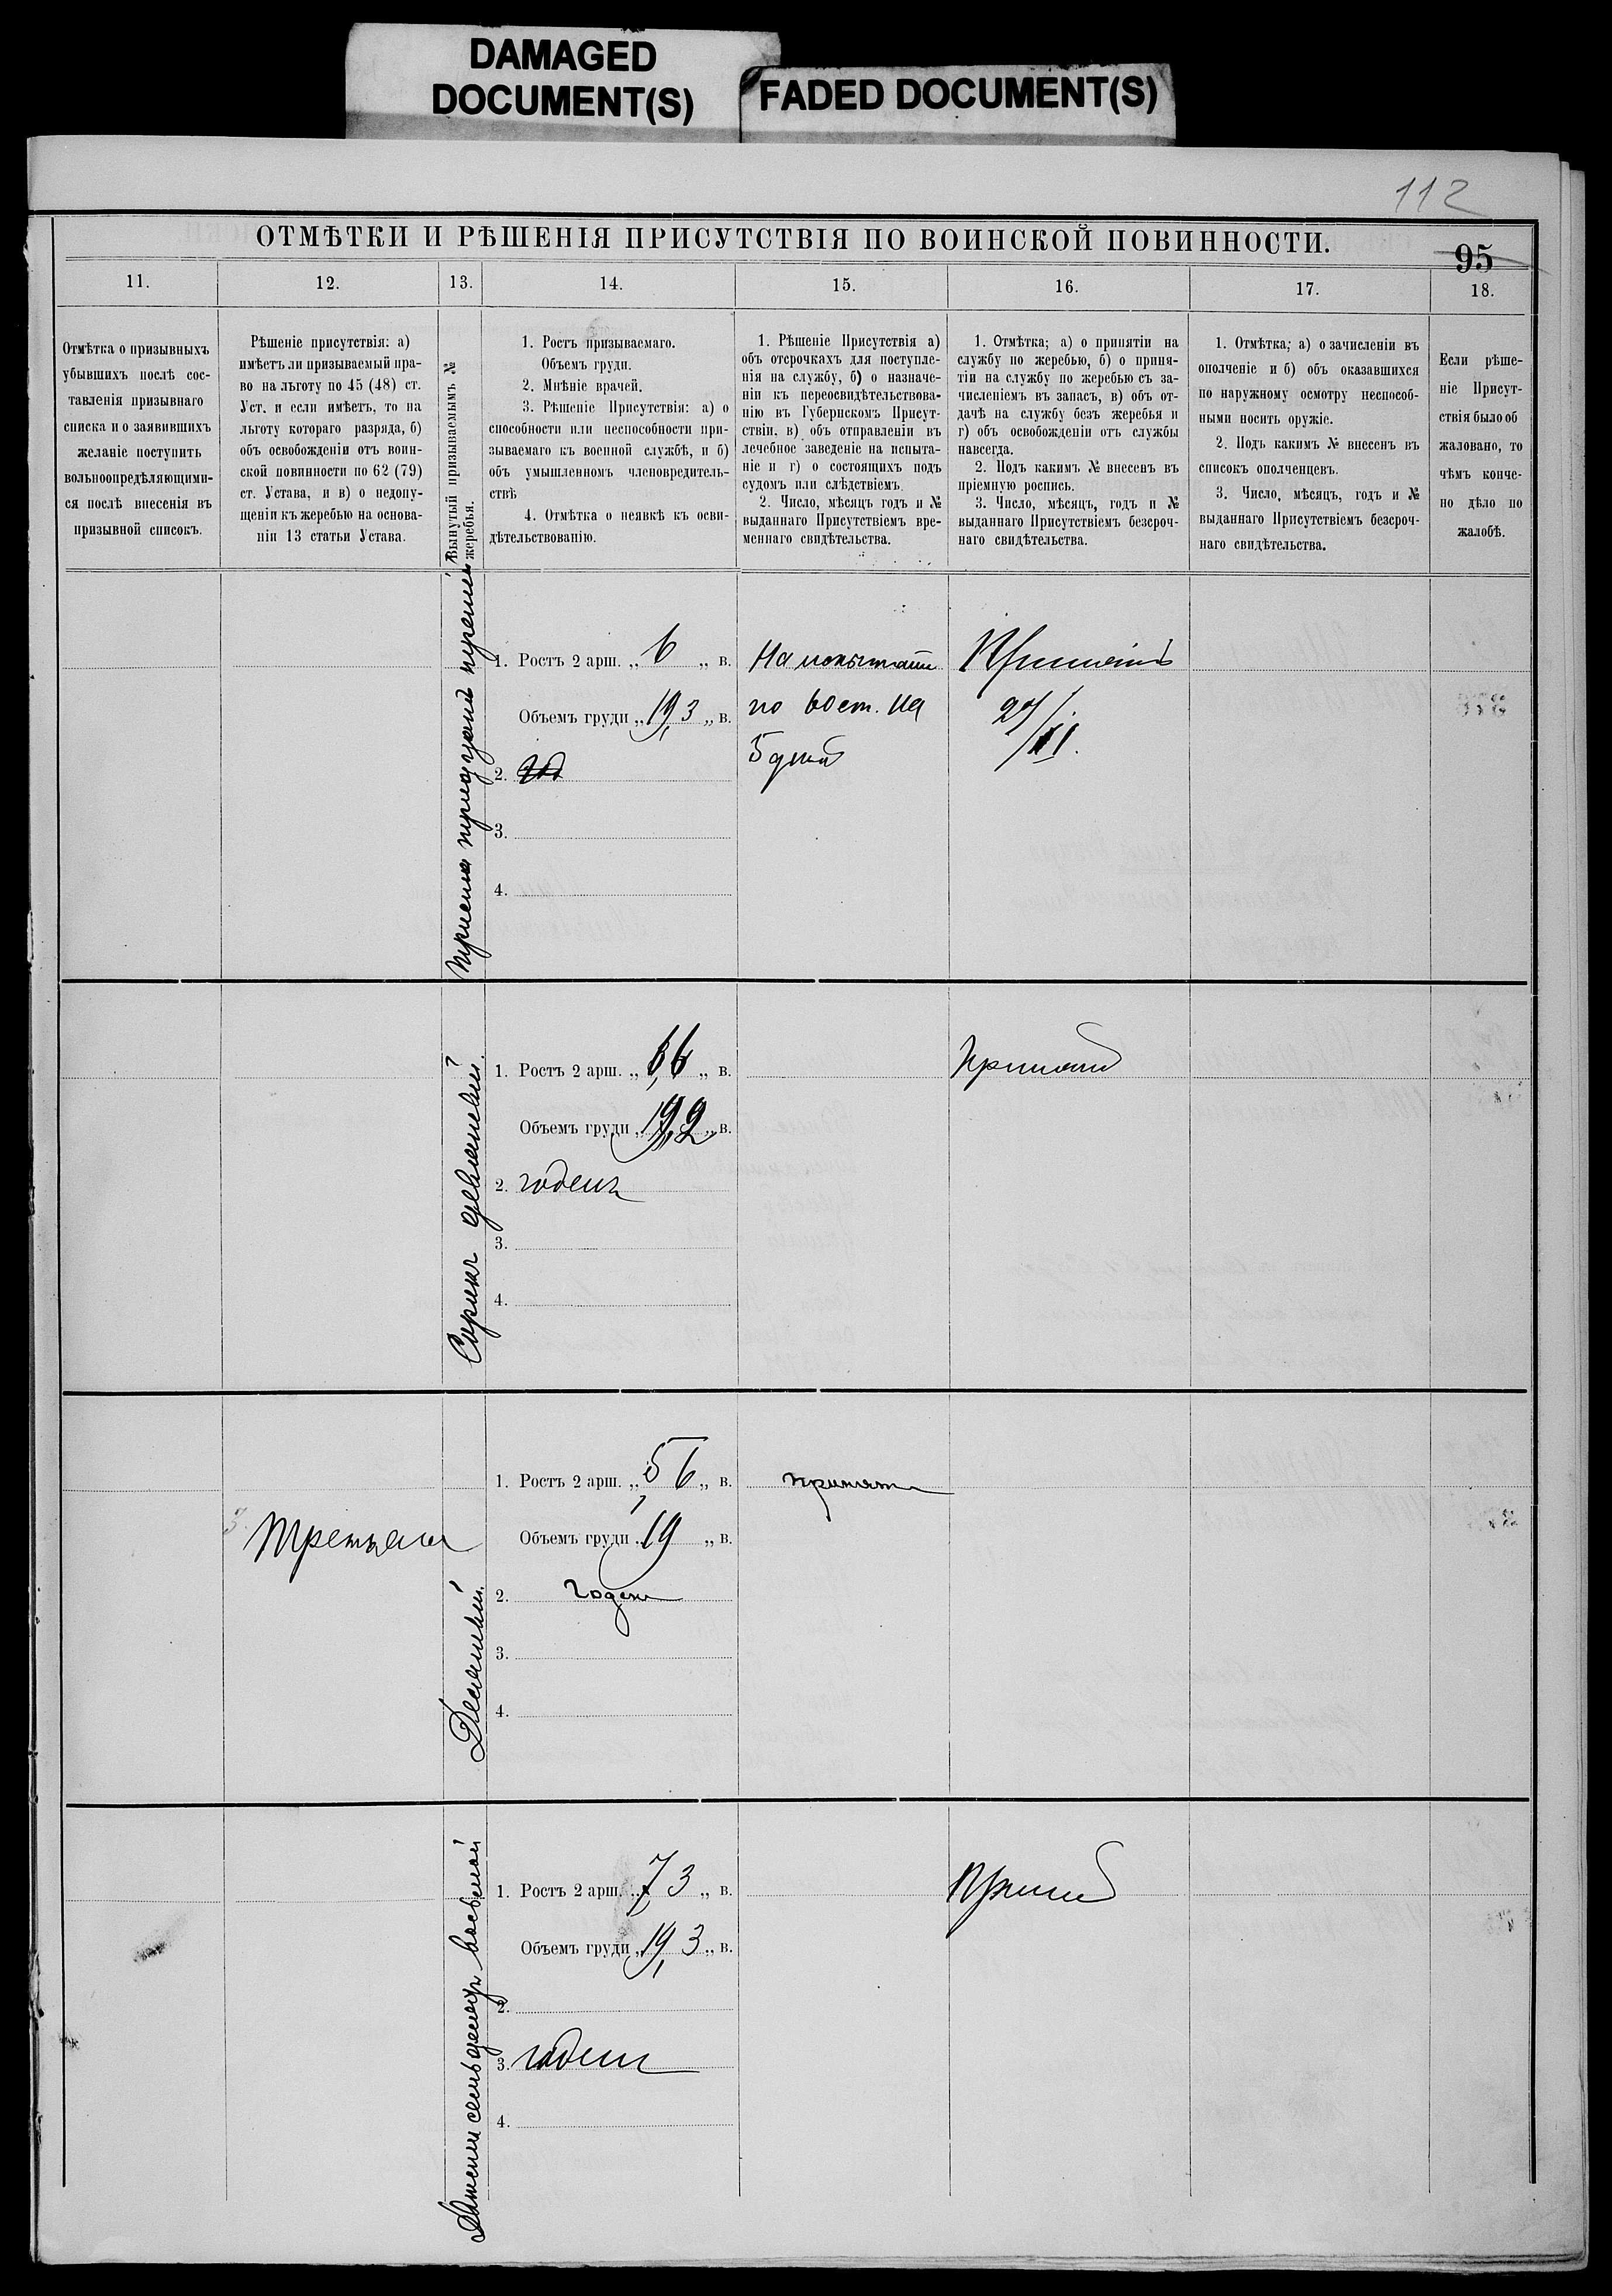 DAMAGED
DOCUMENT(S)
FADED DOCUMENT(S)
112
ОТМѢТКИ И РѢШЕНІЯ ПРИСУТСТВІЯ ПО ВОИНСКОЙ ПОВИННОСТИ.
95
11.
12.
13.
14.
15.
16.
17.
18.
Отмѣтка о призывныхъ
убывшихъ послѣ сос-
тавленія призывнаго
списка и о заявившихъ
желаніе поступить
вольноопредѣляющими-
ся послѣ внесенія въ
призывной списокъ.
Рѣшеніе присутствія: а)
имѣетъ ли призываемый пра-
во на льготу по 45 (48) ст.
Уст. и если имѣетъ, то на
льготу котораго разряда, б)
объ освобожденіи отъ воин-
ской повинности по 62 (79)
ст. Устава, и в) о недопу-
щеніи къ жеребью на основа-
ніи 13 статьи Устава.
Вынутый призываемымъ №
жеребья.
1. Ростъ призываемаго.
Объемъ груди.
2. Мнѣніе врачей.
3. Рѣшеніе Присутствія: а) о
способности или неспособности при-
зываемаго къ военной службѣ, и б)
объ умышленномъ членовредитель-
ствѣ
4. Отмѣтка о неявкѣ къ осви-
дѣтельствованію.
1. Рѣшеніе Присутствія а)
объ отсрочкахъ для поступле-
нія на службу, б) о назначе-
ніи къ переосвидѣтельствова-
нію въ Губернскомъ Присут-
ствіи, в) объ отправленіи въ
лечебное заведеніе на испыта-
ніе и г) о состоящихъ подъ
судомъ или слѣдствіемъ.
2. Число, мѣсяцъ годъ и №
выданнаго Присутствіемъ вре-
меннаго свидѣтельства.
1. Отмѣтка; а) о принятіи на
службу по жеребью, б) о приня-
тіи на службу по жеребью съ за-
численіемъ въ запасъ, в) объ от-
дачѣ на службу безъ жеребья и
г) объ освобожденіи отъ службы
навсегда.
2. Подъ какимъ № внесенъ въ
пріемную роспись.
3. Число, мѣсяцъ, годъ и №
выданнаго Присутствіемъ безсроч-
наго свидѣтельства.
1. Отмѣтка; а) о зачисленіи въ
ополченіе и б) объ оказавшихся
по наружному осмотру неспособ-
ными носить оружіе.
2. Подъ какимъ № внесенъ въ
списокъ ополченцевъ.
3. Число, мѣсяцъ, годъ и №
выданнаго Присутствіемъ безсроч-
наго свидѣтельства.
Если рѣше-
ніе Присут-
ствія было об
жаловано, то
чѣмъ конче-
но дѣло по
жалобѣ.
Триста тридцать третій
1. Ростъ 2 арш. „ 6 „ в.
Объемъ груди „ 19,3 „ в.
2.
3.
4.
На испытаніе
по 60 ст. на
5 дней
Принятъ
27/XI.
Сорокъ девятый.
1. Ростъ 2 арш. „ 6,6 „ в.
Объемъ груди „ 19,2 „ в.
2. годенъ
3.
4.
Принятъ
Третьяго
Десятый.
1. Ростъ 2 арш. „ 5,6 „ в.
Объемъ груди „ 19 „ в.
2. годенъ
3.
4.
принятъ
Двѣсти семьдесятъ восьмой
1. Ростъ 2 арш. „ 7,3 „ в.
Объемъ груди „ 19,3 „ в.
2.
3. годенъ
4.
Принятъ